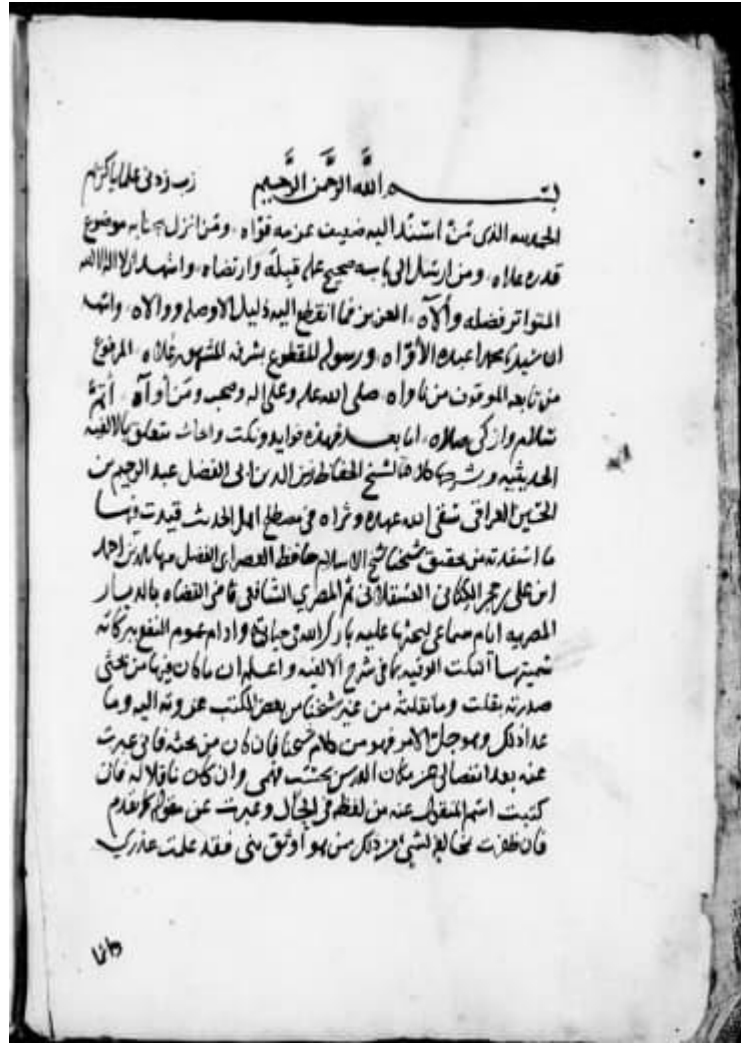 بسم الله الرحمن الرحيم رب زدني علما يا كريم
الحمد لله الذي من اسند اليه ضعيف عزمه قواه ومن انزل بجنابه موضوع
قدره علاه ومن ارسل الى بابه صحيح عمله قبله وارتضاه واشهد ان لا اله الا الله
المتواتر فضله وألاه العزيز فما انقطع اليه ذليل الا وصله ووالاه واشهد
ان سيدنا محمدا عبده الأواه ورسوله المقطوع بشرفه المشهور علاه المرفوع
من تابعه الموقوف من ناواه صلى الله عليه وعلى اله وصحبه ومن أواه أتم
سلام وازكى صلاه اما بعد فهذه فوايد ونكت وابحاث متعلق بالالفيه
الحديثيه وشرحها كلاهما لشيخ الحفاظ زين الدين ابى الفضل عبد الرحيم بن
الحسين العراقي سقى الله عهده وثراه في مصطلح اهل الحديث قيدت فيها
ما استفدته من تحقيق شيخنا شيخ الاسلام حافظ العصر ابى الفضل شهاب الدين احمد
ابن على بن حجر الكناني العسقلاني ثم المصري الشافعي قاضى القضاه بالديار
المصريه ايام سماعي لبحثها عليه بارك الله في حياته وادام عموم النفع ببركاته
سميتها النكت الوفيه بما في شرح الالفيه واعلم ان ما كان فيها من بحثي
صدرته بقلت وما نقلته من غير شيخنا من بعض الكتب عزوته اليه وما
عدا ذلك وهو جل الامر فهو من كلام شيخنا فان كان من بحثه فاني عبرت
عنه بعد انفصالى من مكان الدرس بحسب فهمى وان كان ناقلا له فاني
كتبت اسم المنقول عنه من لفظه في الحال وعبرت عن مقوله كما تقدم
فان ظفرت بمخالف لشي من ذلك ممن هو أوثق منى فقد علمت عذري